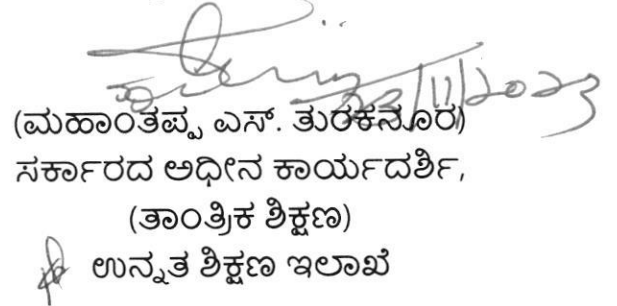 23/11/2023
(ಮಹಾಂತಪ್ಪ ಎಸ್. ತುರಕನೂರ)
ಸರ್ಕಾರದ ಅಧೀನ ಕಾರ್ಯದರ್ಶಿ,
(ತಾಂತ್ರಿಕ ಶಿಕ್ಷಣ)
ಉನ್ನತ ಶಿಕ್ಷಣ ಇಲಾಖೆ